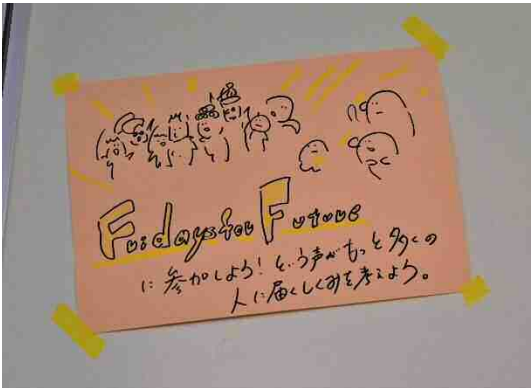 Fridays for Future
に参加しよう！という声がもっと多くの
人に届くしくみを考えよう。